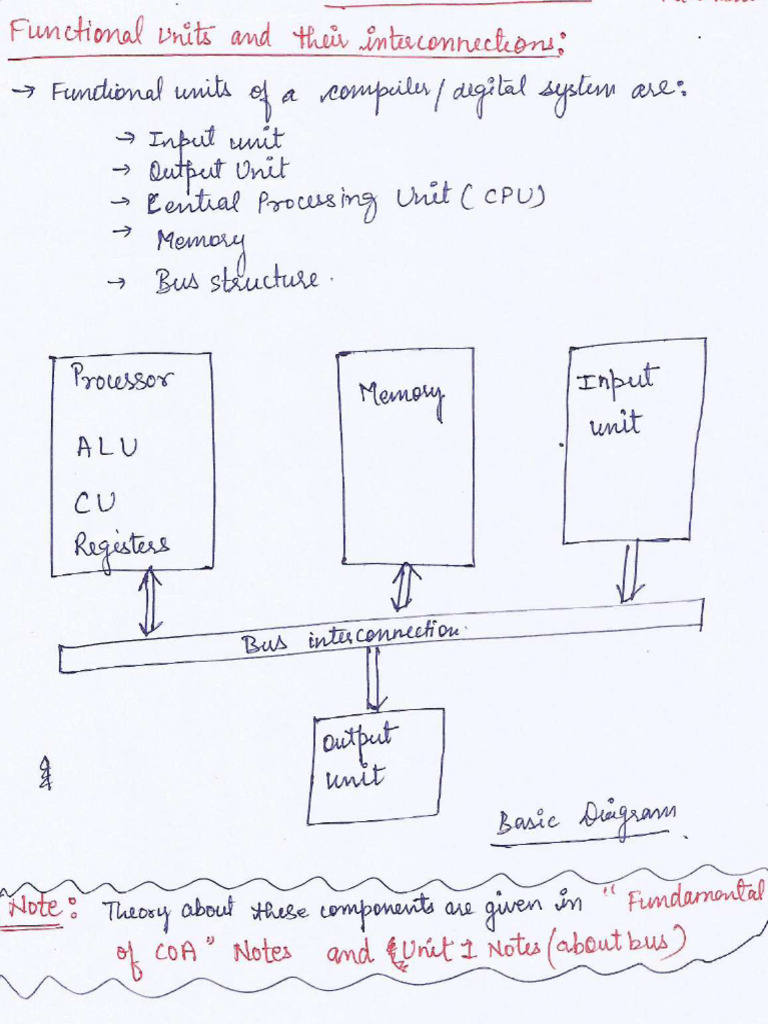 Functional units and their interconnections:
→ Functional units of a computer/digital system are:
→ Input unit
→ Output Unit
→ Central Processing Unit (CPU)
→ Memory
→ Bus structure.
Processor
ALU
CU
Registers
Memory
Input
unit
Bus interconnection.
Output
unit
Basic Diagram
Note: Theory about these components are given in "Fundamental
of COA" Notes and Unit 1 Notes (about bus)